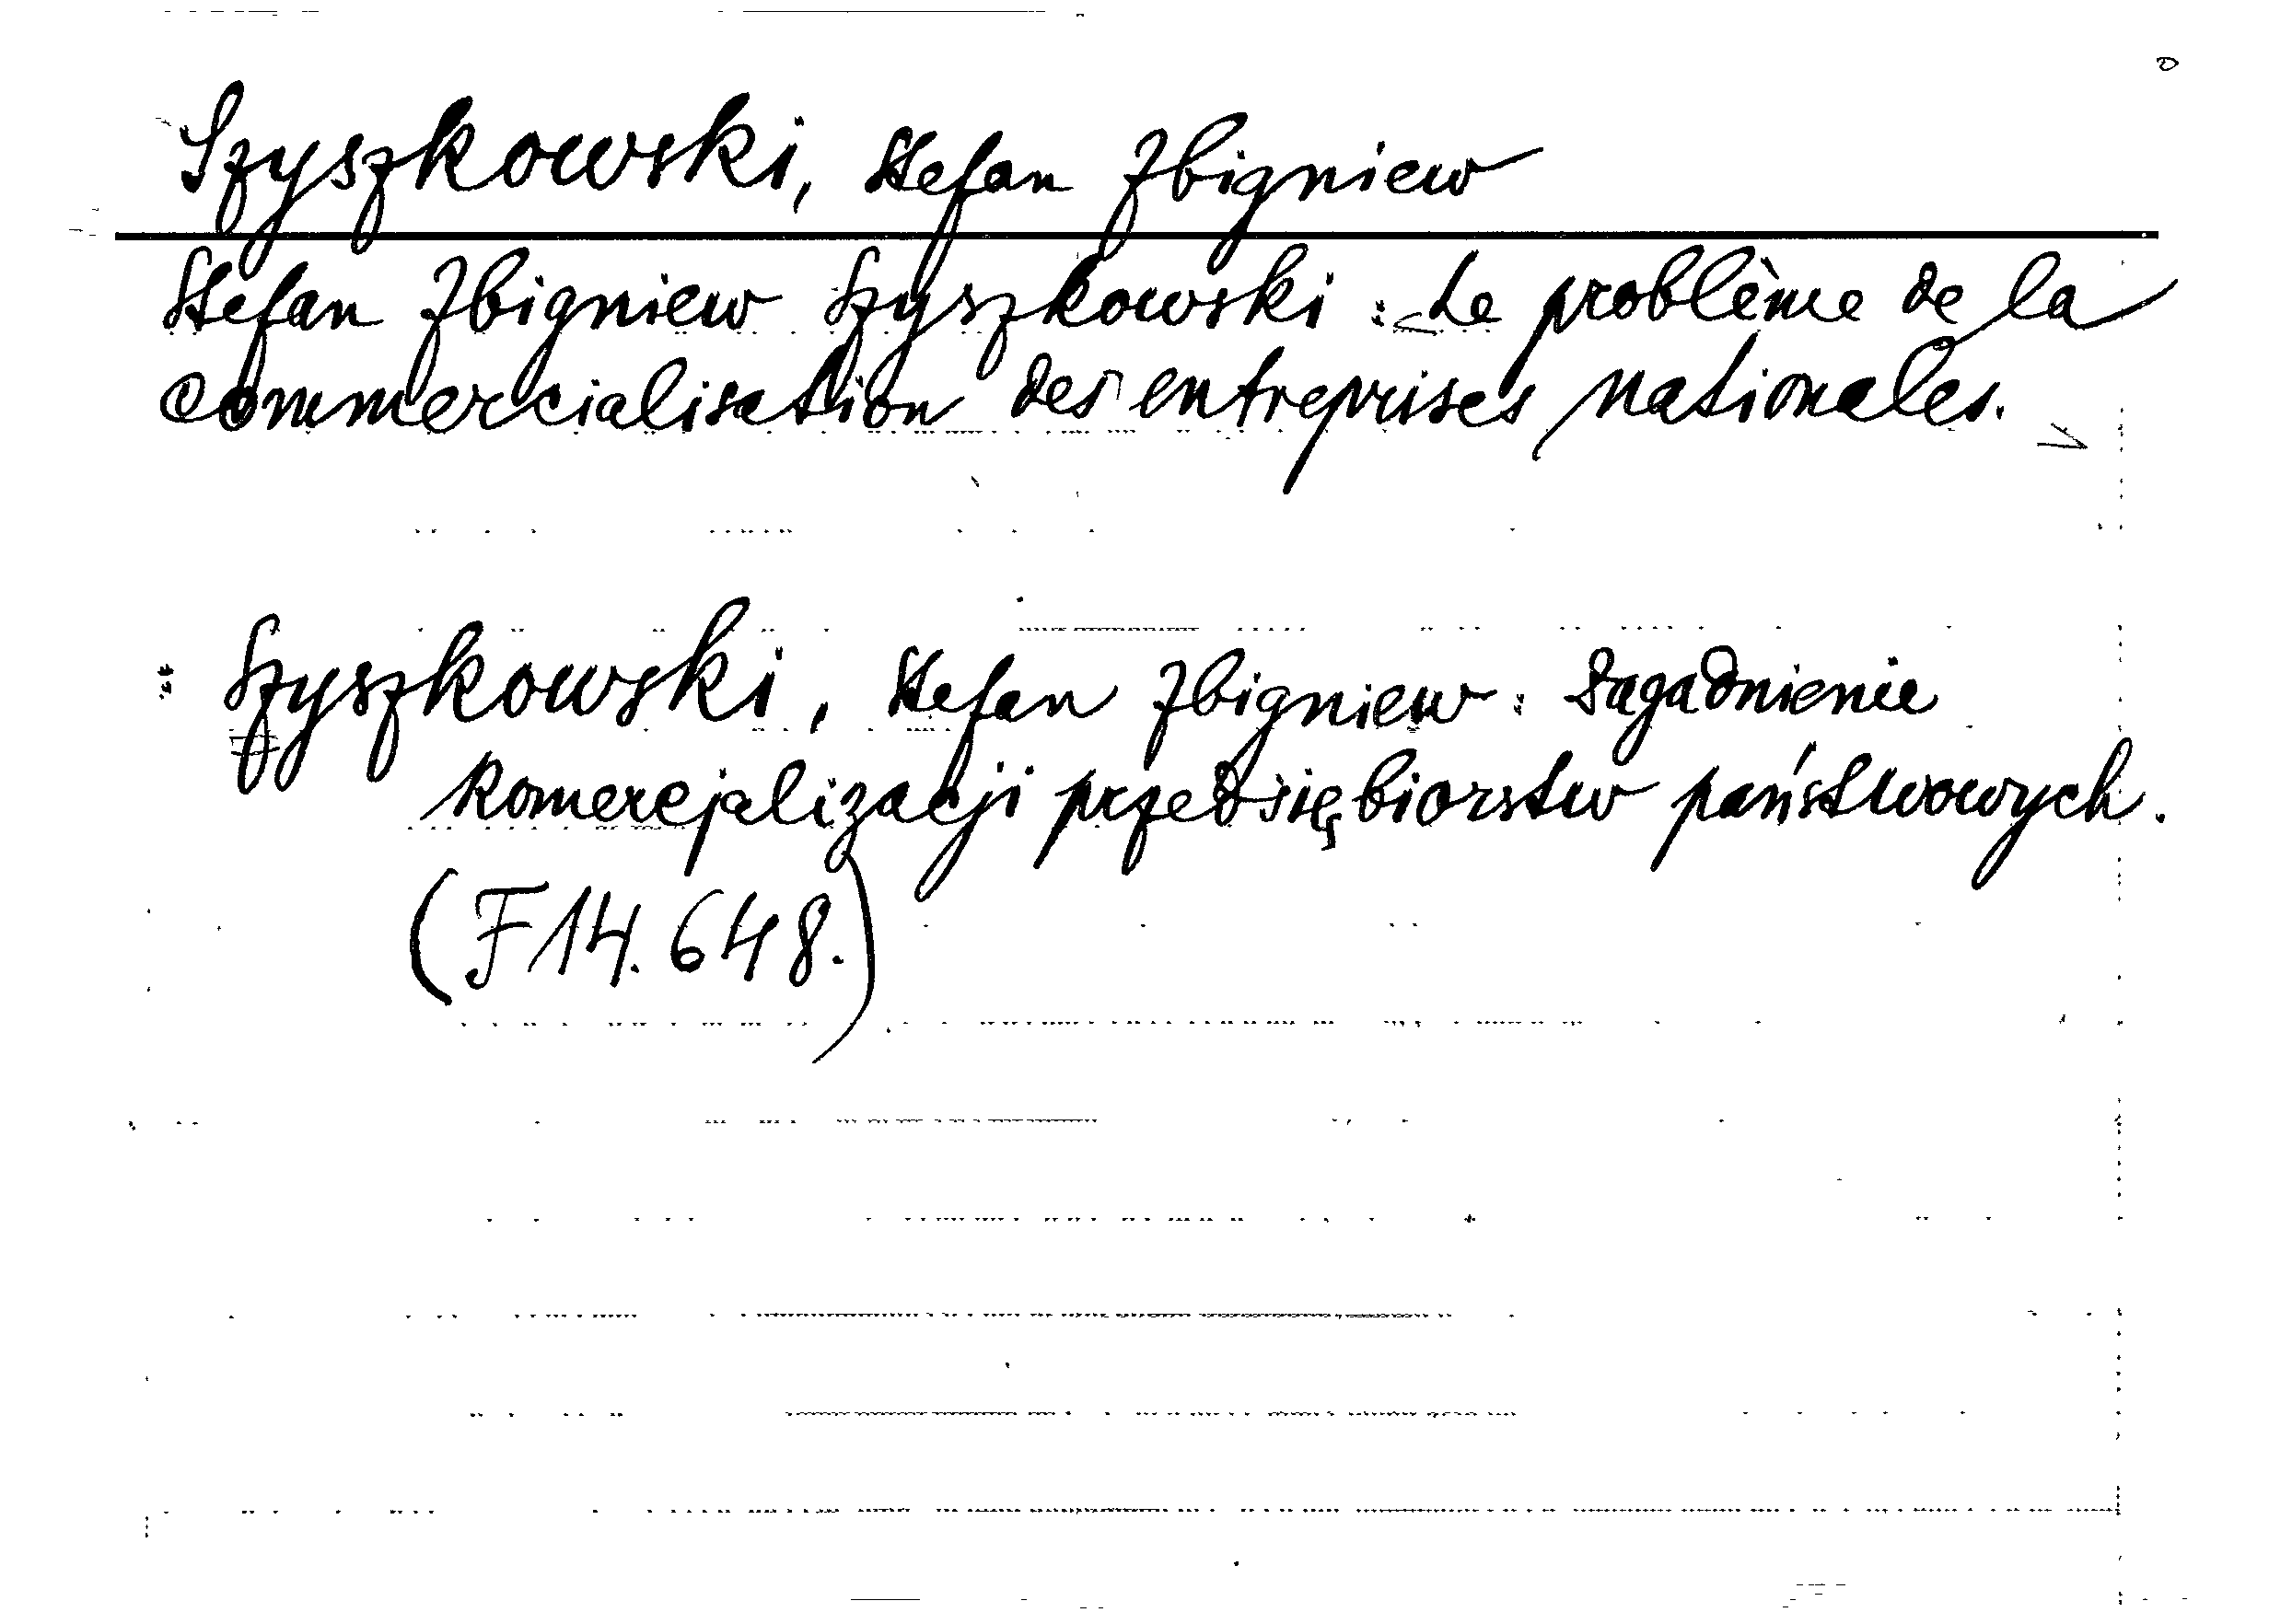 Szyszkowski, Stefan Zbigniew
Stefan Zbigniew Szyszkowski : <Le problème de la
commercialisation des entreprises nationales.>
: Szyszkowski, Stefan Zbigniew : Zagadnienie
komercjalizacji przedsiębiorstw państwowych.
(F14.648.)